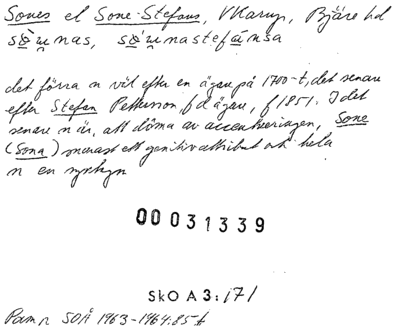 Sones el Sone-Stefans, V Karup, Bjäre hd
sònas, sònastefánsa
det förra n väl efter en ägare på 1700-t, det senare
efter Stefan Pettersson, f d ägare, f 1851. I det
senare n är, att döma av accentueringen, Sone
(Sona) snarast ett genitivattribut och hela
n en
00031339
SkO A3:171
Pam n SOÅ 1963-1964:85 f